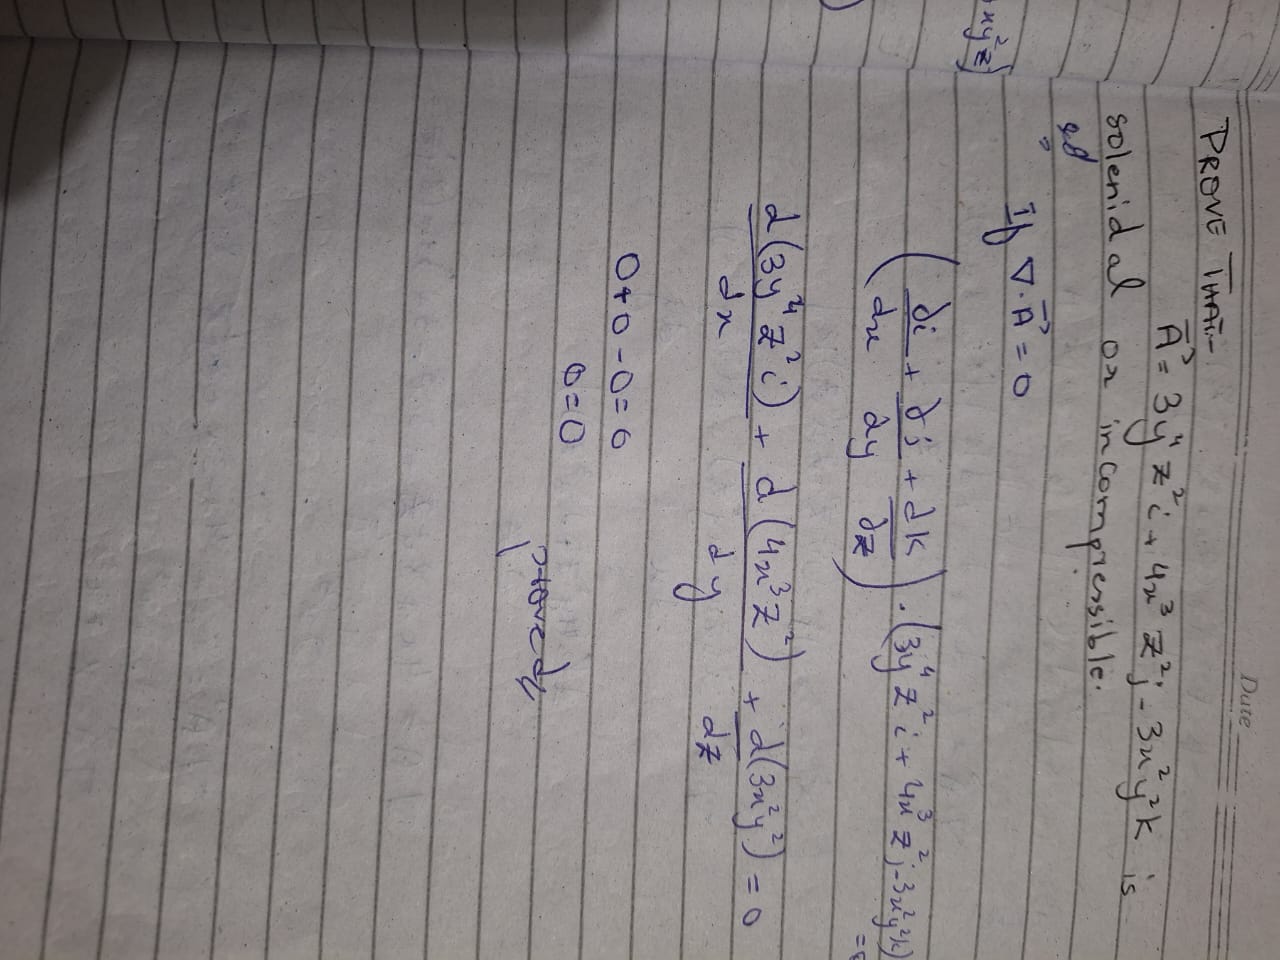 Date
PROVE THAT:-
A⃗ = 3y⁴ z² i + 4x³ z² j - 3x² y² k is
solenidal or incompressible.
sol
If ∇. A⃗ = 0
(∂i/dx + ∂j/dy + dk/∂z) . (3y⁴ z² i + 4x³ z² j - 3x²y²k)
d(3y⁴ z² i)/dx + d(4x³ z²)/dy + d(3x² y²)/dz = 0
0 + 0 - 0 = 0
0 = 0
proved
xy²z)